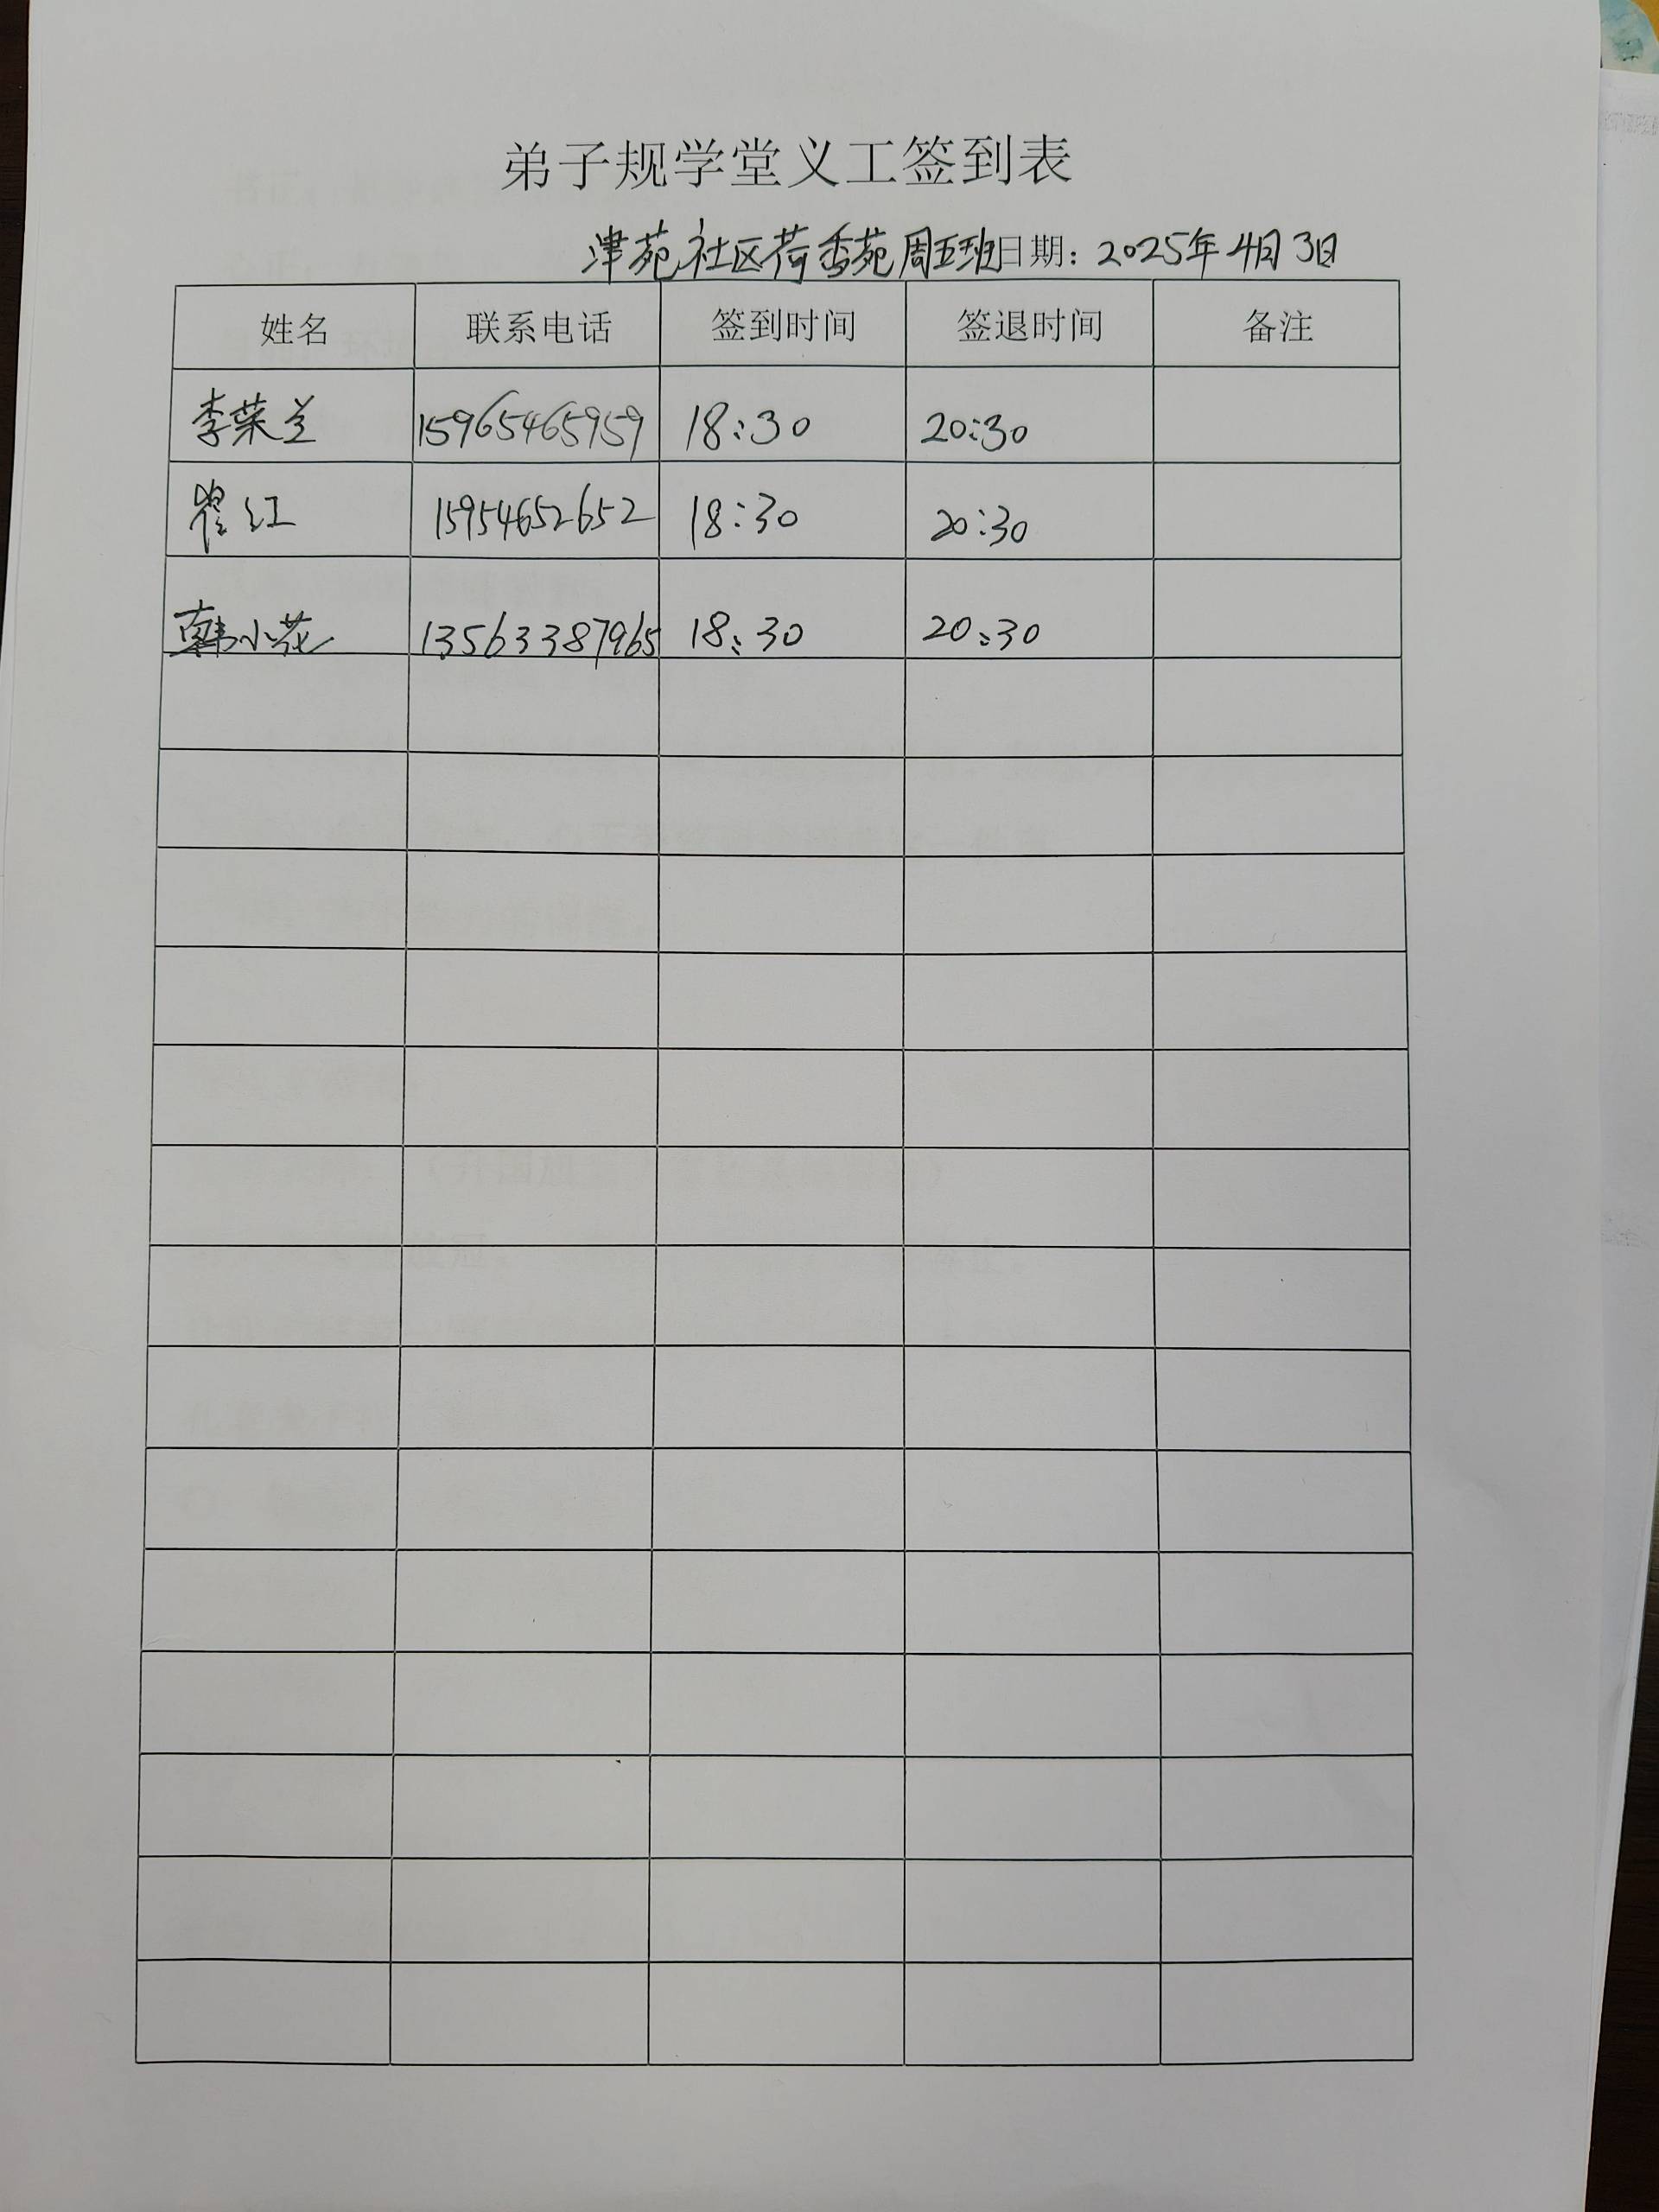 弟子规学堂义工签到表
津苑社区荷香苑周五班日期：2025年4月3日
姓名 联系电话 签到时间 签退时间 备注
李荣兰 15965465959 18:30 20:30
翟红 15954652652 18:30 20:30
韩小花 13563387965 18:30 20:30